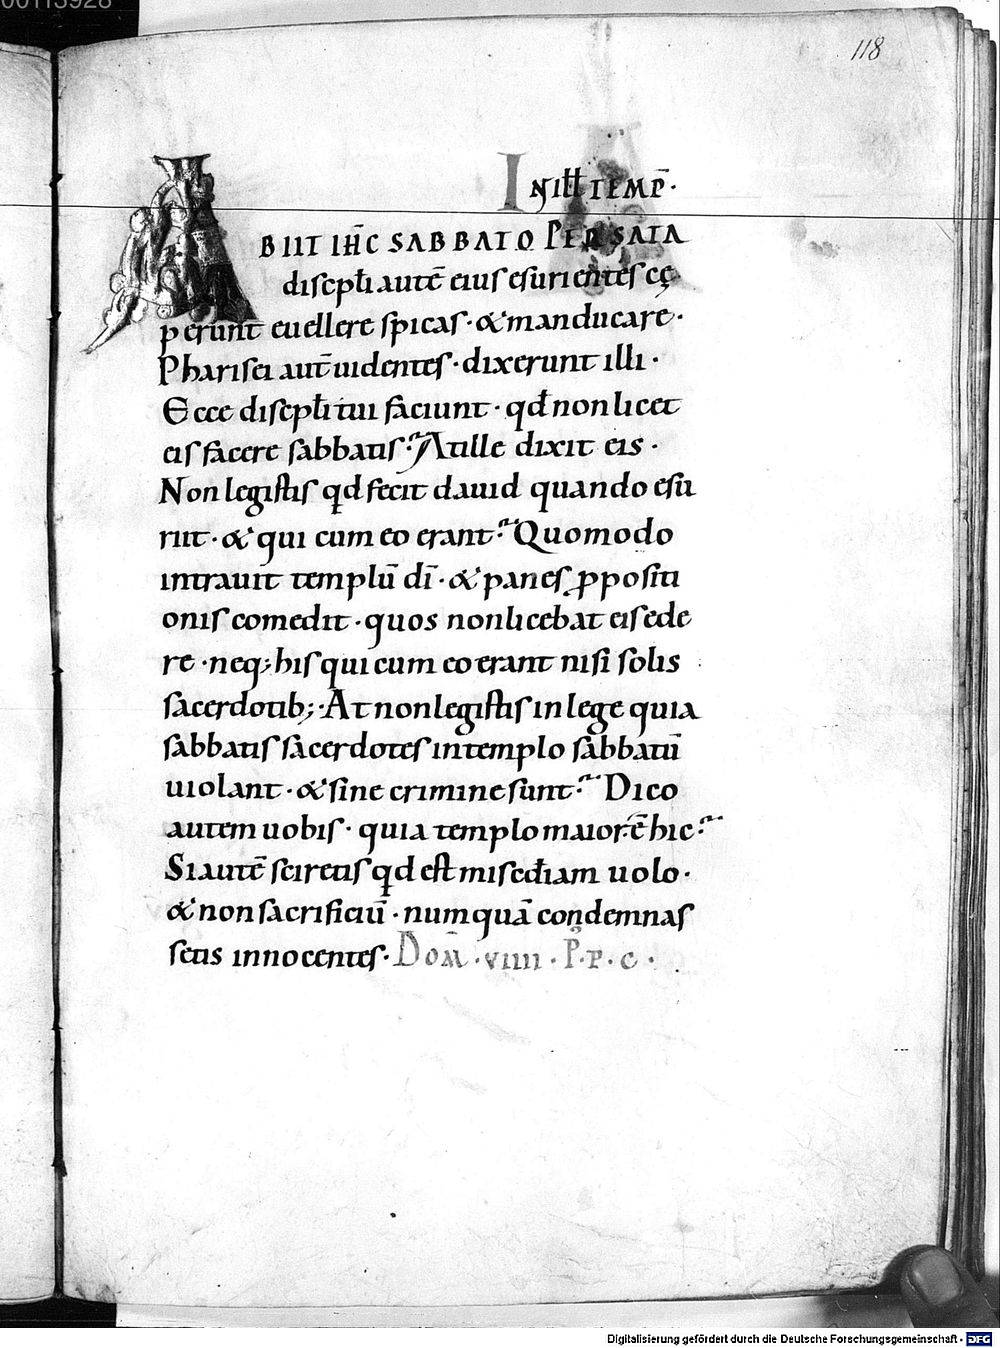 00113928
118
IN ILŁ TEMP̄·
ABIIT IHC̄ SABBATO PER SATA
discipłi autē eius esurientes cę
perunt euellere spicas· & manducare·
Pharisei aut̄ uidentes· dixerunt illi·
Ecce discipłi tui faciunt· qđ non licet
eis facere sabbatis· At ille dixit eis·
Non legistis qd fecit dauid quando esu
riit· & qui cum eo erant· Quomodo
intrauit templū dī· & panes ꝓpositi
onis comedit· quos non licebat eis ede
re· neq; his qui cum eo erant nisi solis
sacerdotib;· At non legistis in lege quia
sabbatis sacerdotes in templo sabbatū
uiolant· & sine crimine sunt· Dico
autem uobis· quia templo maior ē hic·
Si autē sciretis qd est misedīam uolo·
& non sacrificiū· numquā condemnas
setis innocentes· DOM̄· VIIII· P̄· P· C·
Digitalisierung gefördert durch die Deutsche Forschungsgemeinschaft - DFG